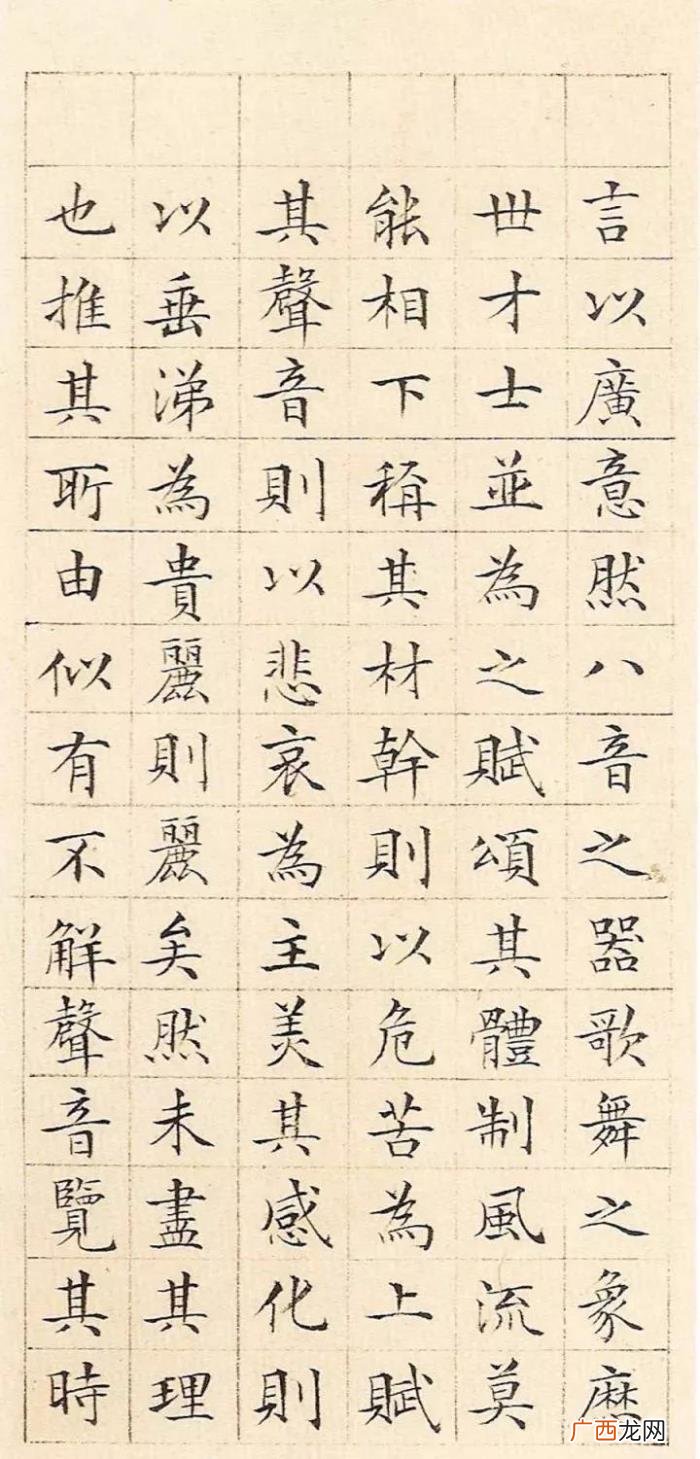 言以廣意然八音之器歌舞之象歷
世才士並為之賦頌其體制風流莫
能相下稱其材幹則以危苦為上賦
其聲音則以悲哀為主美其感化則
以垂涕為貴麗則麗矣然未盡其理
也推其所由似有不解聲音覽其時
广西龙网